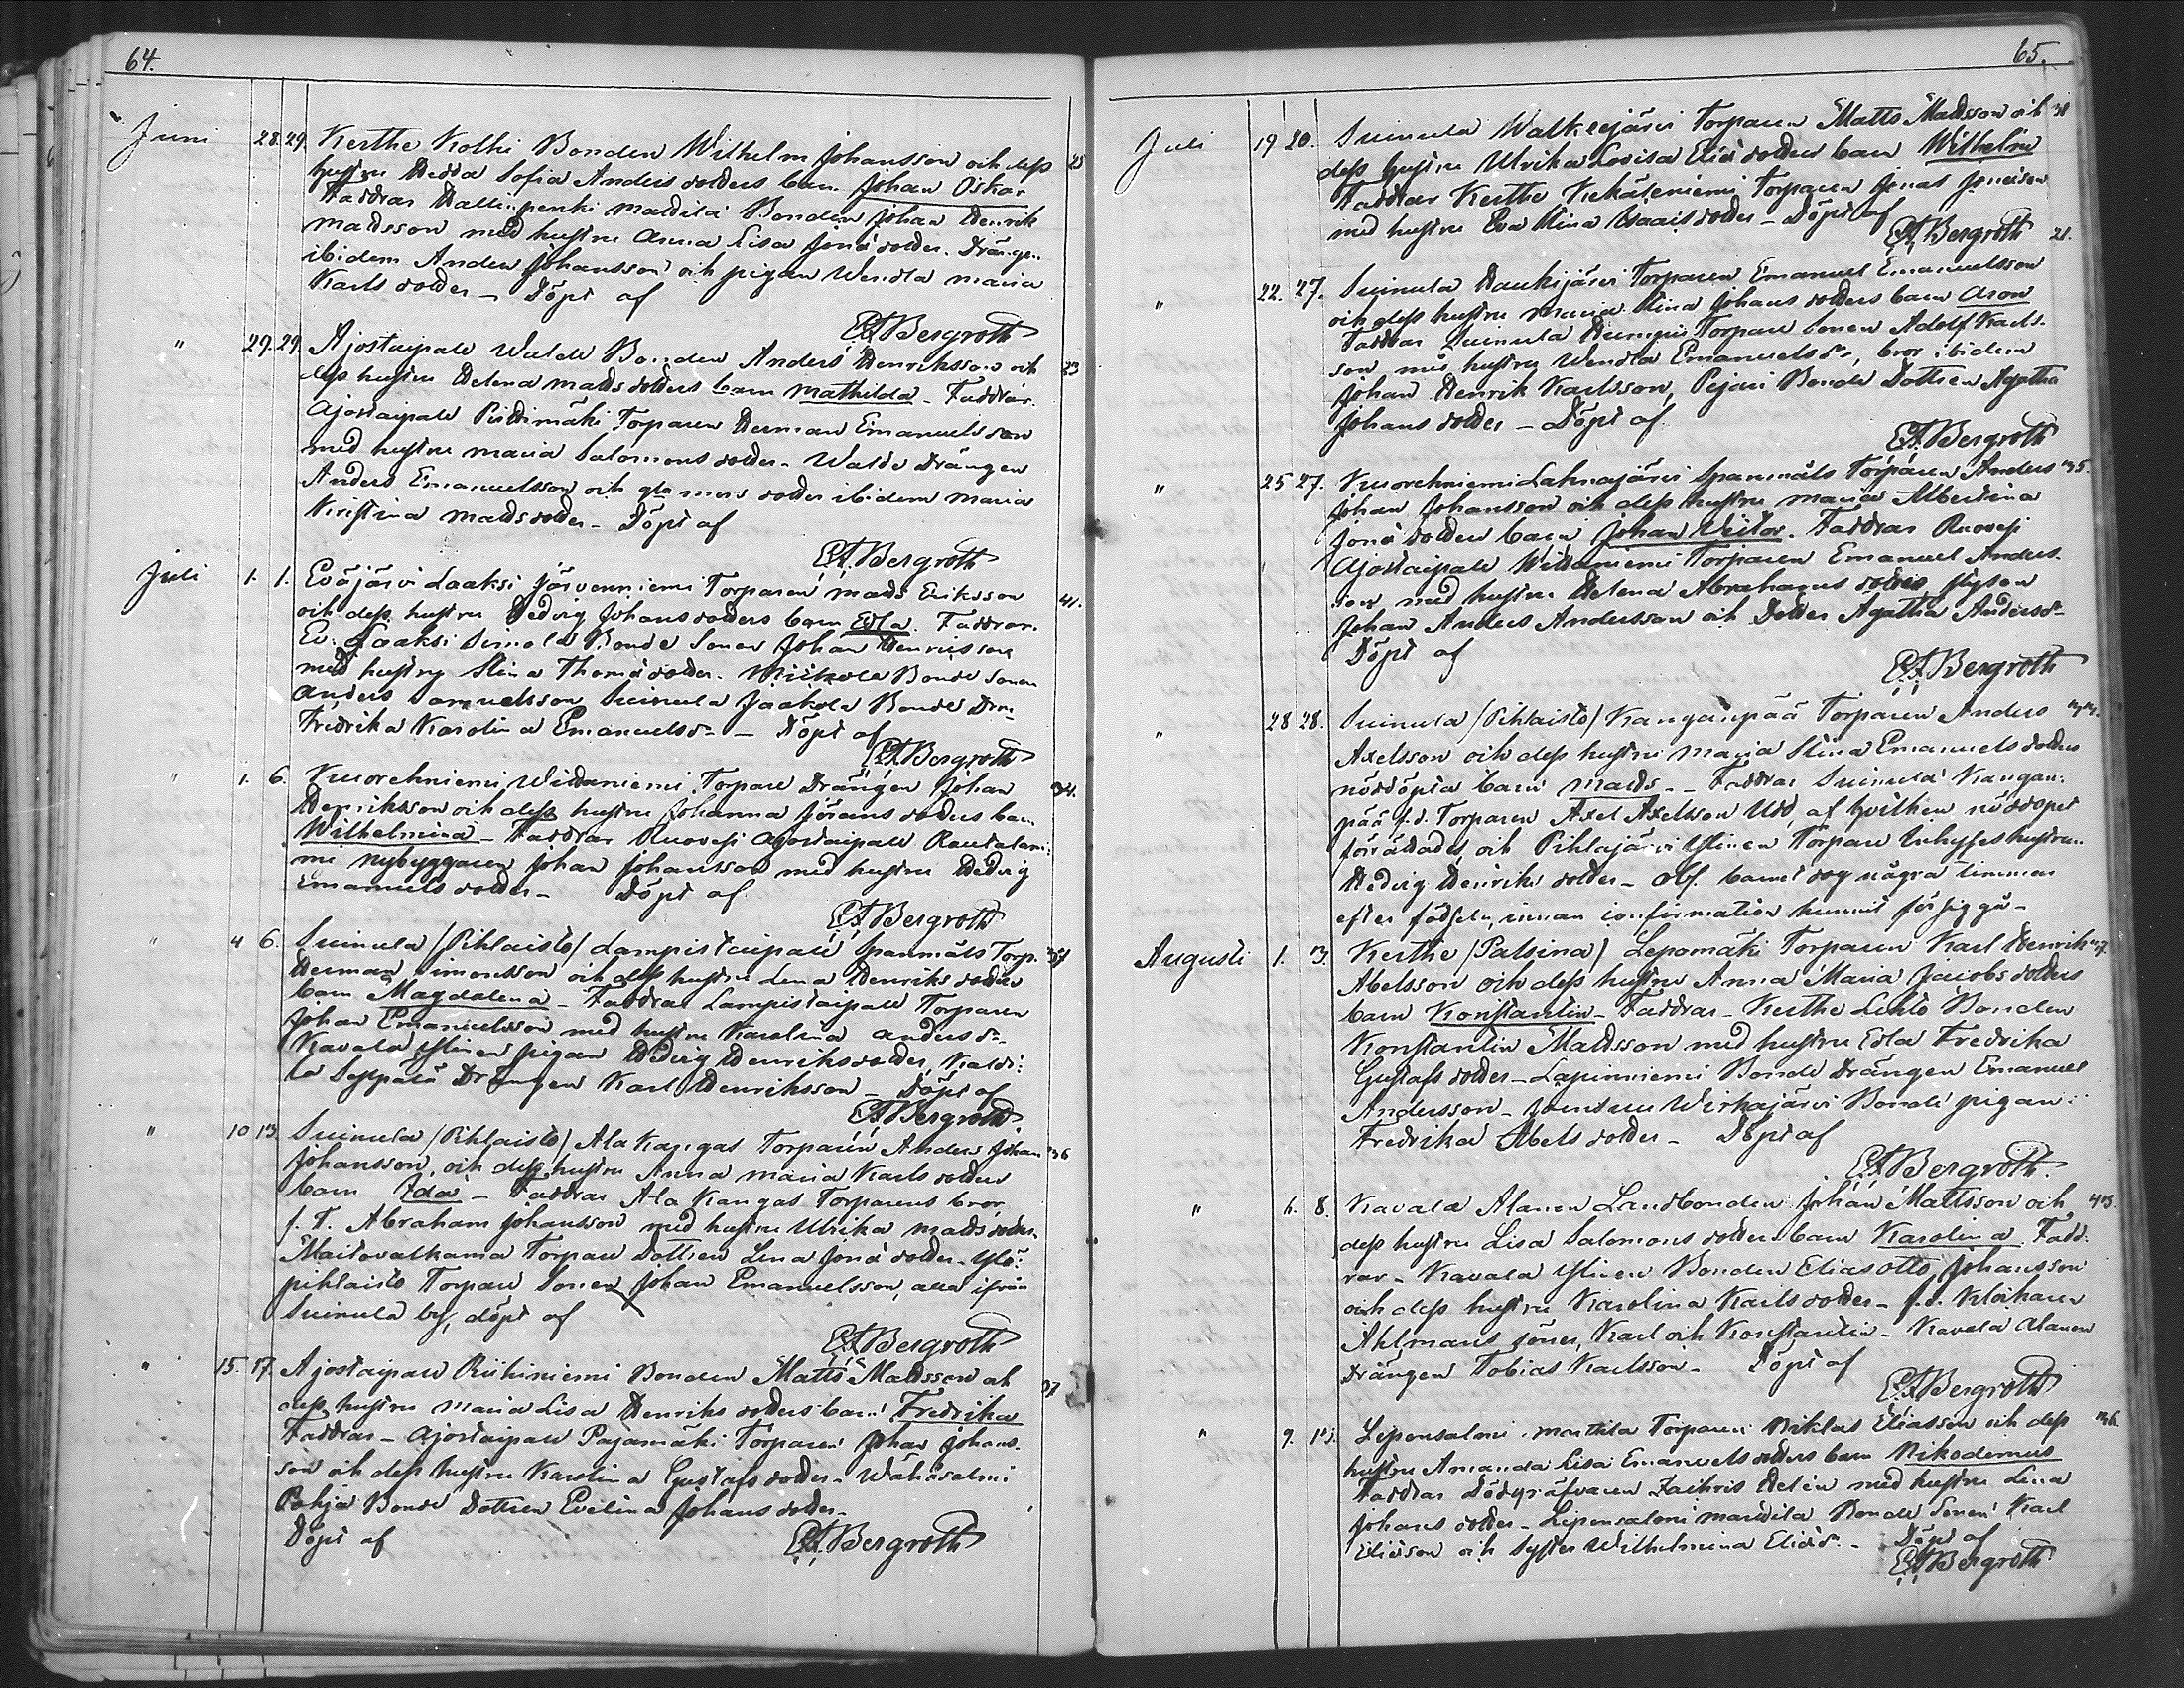 64.
Juni 28. 29. Kerthe Kolhi Bonden Wilhelm Johansson och dess 25
hustru Hedda Sofia Anders dotters barn Johan Oskar
Faddrar Hallinpenki Mattila Bonden Johan Henrik
Mattsson med hustru Anna Lisa Jona dotter. Drängen
ibidem Anders Johansson och pigan Wendla Maria
Karls dotter – Döpt af
EA Bergroth
" 29. 29. Ajostaipale Walde Bonden Anders Henriksson och 23
dess hustru Helena Matts dotters barn Mathilda – Faddrar.
Ajostaipale Pirttimäki Torparen Herman Emanuelsson
med hustru Maria Salomons dotter – Walde Drängen
Anders Emanuelsson och gla mors dotter ibidem Maria
Kristina Matts dotter – Döpt af
EA Bergroth
Juli 1. 1. Eväjärvi Laaksi Järvenniemi Torparen Matts Eriksson 41.
och dess hustru Hedvig Johans dotters barn Edla. Faddrar.
Ev. Laaksi Simola Bonde Sonen Johan Henriksson
med hustru Stina Thomä dotter. Mickola Bonde Sonen
Anders Samuelsson Suinula Jaakola Bonde Dtrn
Fredrika Karolina Emanuelsdr – Döpt af
EA Bergroth
" 1. 6. Kuorehniemi Widaniemi Torpare Drängen Johan 34.
Henriksson och dess hustru Johanna Jörans dotters barn
Wilhelmina – Faddrar Ruovesi Ajostaipale Rautalani:
mi Nybyggaren Johan Johansson med hustru Hedvig
Emanuels dotter – Döpt af
EA Bergroth
" 4 6. Suinula /Pihlaisto/ Lampistaipale Spanmåls Torp.
Herman Simonsson och dess hustru Lena Henriks dotters
barn Magdalena – Faddrar Lampistaipale Torparen
Johan Emanuelsson med hustru Karolina Andersdr
Kavala Ylinen pigan Hedvig Henriksdotter, Kaldi:
la Seppälä Drängen Karl Henriksson – Döpt af
EA Bergroth
" 10 13 Suinula /Pihlaisto/ Ala Kangas Torparen Anders Johan 36
Johansson, och dess hustru Anna Maria Karls dotters
barn Ida – Faddrar Ala Kangas Torparens bror
f. T. Abraham Johansson med hustru Ulrika Matts dotter.
Maitovalkama Torpare Dottren Lena Jona dotter. Ylö:
pihlaisto Torpare Sonen Johan Emanuelsson, alla ifrån
Suinula by, döpt af
EA Bergroth
" 15. 17. Ajostaipale Riihiniemi Bonden Matts Mattsson och 37
dess hustru Maria Lisa Henriks dotters barn Fredrika
Faddrar – Ajostaipale Pajamäki Torparen Johan Johans-
son och dess hustru Karolina Gustafs dotter – Wähäsalmi
Pohja Bonde Dottren Evelina Johans dotter –
Döpt af EA Bergroth
65.
Juli 19 20. Suinula Walkeejärvi Torparen Matts Mattsson och 31
dess hustru Ulrika Lovisa Eliä dotters barn Wilhelm
Faddrar Kerthe Kekäleniemi Torparen Jonas Jonasson
med hustru Eva Stina Isaaksdotter – Döpt af
EA Bergroth 21.
" 22. 27. Suinula Haukijärvi Torparen Emanuel Emanuelsson
och dess hustru Maria Stina Johans dotters barn Aron
Faddrar Suinula Humpii Torpare Sonen Adolf Karls-
son, med hustru Wendla Emanuelsdr, bror ibidem
Johan Henrik Karlsson, Pejari Bonde Dottren Agatha
Johans dotter – Döpt af
EA Bergroth
" 25 27. Kuorehniemi Lahnajärvi Spanmåls Torparen Anders 35.
Johan Johansson och dess hustru Maria Albertina
Jona dotters barn Johan Weitor. Faddrar Ruovesi
Ajostaipale Widaniemi Torparen Emanuel Anders-
son med hustru Helena Abrahams dotter
Johan Anders Andersson och Dotter Agatha Andersdr
Döpt af
EA Bergroth
" 28 28. Suinula /Pihlaisto/ Kanganpää Torparen Anders
Axelsson och dess hustru Maria Stina Emanuels dotters
nöddöpta barn Matts – Faddrar Suinula Kangan:
pää f.d. Torparen Axel Axelsson Udd, af hvilken nöddopet
förrättades, och Pihlajärvi Ylinen Torpare Inhyses hustrun
Hedvig Henriks dotter – Obs. barnet dog några timmar
efter födseln, innan confirmation hunnit försiggå –
Augusti 1. 3. Kerthe /Palsina/ Lepomäki Torparen Karl Henrik 37.
Abelsson och dess hustru Anna Maria Jacobs dotters
barn Konstantin – Faddrar – Kerthe Lehto Bonden
Konstantin Mattsson med hustru Edla Fredrika
Gustafs dotter – Lapinniemi Bonde Drängen Emanuel
Andersson – Wirkajärvi Bonde pigan
Fredrika Abels dotter – Döpt af
EA Bergroth.
" 6. 8. Kavala Alanen Landbonden Johan Mattsson och 43.
dess hustru Lisa Salomons dotters barn Karolina. Fadd-
rar – Kavala Ylinen Bonden Elias Otto Johansson
och dess hustru Karolina Karls dotter – f.d. Klockaren
Ahlmans söner, Karl och Konstantin – Kavala Alanen
Drängen Tobias Karlsson – Döpt af
EA Bergroth
" 9. 13. Leponsalmi Marttila Torparen Niklas Eliasson och dess 36.
hustru Amanda Lisa Emanuels dotters barn Nikodemus
Faddrar Dödgräfvaren Zachris Helén med hustru Lena
Johans dotter – Leponsalmi Marttila Bonde Sonen Karl
Eliasson och Syster Wilhelmina Eliädr. – Döpt af
EA Bergroth